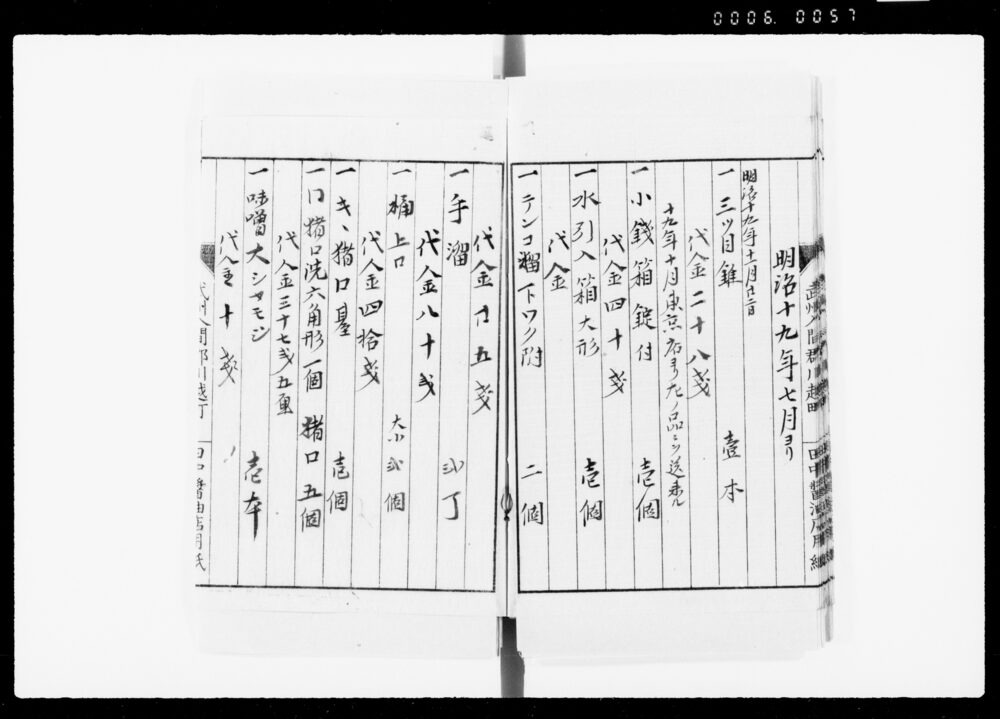 0006. 0057
明治十九年七月ヨリ
明治十九年十一月廿二日
一 三ツ目錐 壹本
代金二十八戔
十九年十月東京店ヨリ左ノ品ニツ送来ル
一 小銭箱 錠付 壱個
代金四十戔
一 水引入箱 大形 壱個
代金
一 テンコ溜 下ワク附 二個
代金廿五戔
一 手溜 弐丁
代金八十戔
一 桶上口 大小弐個
代金四拾戔
一 キヽ猪口臺 壱個
一 〃猪口洗六角形一個 猪口五個
代金三十七戔五厘
一 味噌大シャモジ 壱本
代金十戔
武州入間郡川越町
田中醤油店用紙